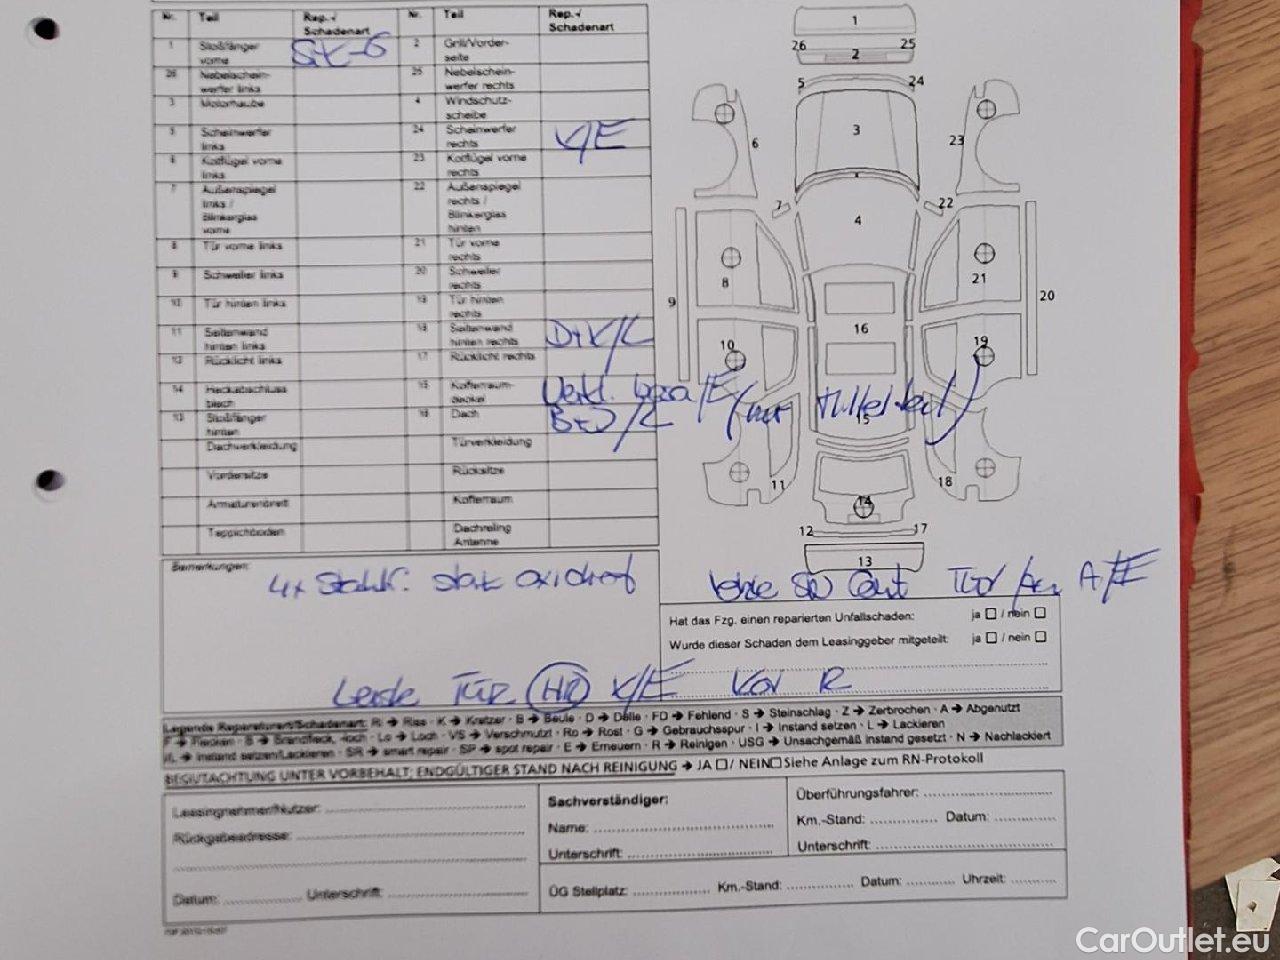 Nr. Teil Rep.-/ Schadenart Nr. Teil Rep.-/ Schadenart
1 Stoßfänger vorne St-G 2 Grill/Vorderseite
26 Nebelscheinwerfer links 25 Nebelscheinwerfer rechts
3 Motorhaube 4 Windschutzscheibe
5 Scheinwerfer links 24 Scheinwerfer rechts K/E
6 Kotflügel vorne links 23 Kotflügel vorne rechts
7 Außenspiegel links / Blinkerglas vorne 22 Außenspiegel rechts / Blinkerglas hinten
8 Tür vorne links 21 Tür vorne rechts
9 Schweller links 20 Schweller rechts
10 Tür hinten links 19 Tür hinten rechts
11 Seitenwand hinten links 18 Seitenwand hinten rechts D+K/L
12 Rücklicht links 17 Rücklicht rechts
14 Heckabschlussblech 15 Kofferraumdeckel
13 Stoßfänger hinten 16 Dach B+D/L
Dachverkleidung Türverkleidung
Vordersitze Rücksitze
Armaturenbrett Kofferraum
Teppichboden Dachreling Antenne
1
26 2 25
5 24
6 3 23
7 4 22
8 21
9 16 20
10 19
15
11 18
14
12 17
13
Bemerkungen:
4x Stahlf. stark oxidiert
Tür A/E
Hat das Fzg. einen reparierten Unfallschaden: ja / nein
Wurde dieser Schaden dem Leasinggeber mitgeteilt: ja / nein
Leiste Tür HR K/E
Legende Reparaturart/Schadenart: Ri → Riss · K → Kratzer · B → Beule · D → Delle · FD → Fehlend · S → Steinschlag · Z → Zerbrochen · A → Abgenutzt
F → Flecken · B → Brandfleck, -loch · Lo → Loch · VS → Verschmutzt · Ro → Rost · G → Gebrauchsspur · I → Instand setzen · L → Lackieren
I/L → Instand setzen/Lackieren · SR → smart repair · SP → spot repair · E → Erneuern · R → Reinigen · USG → Unsachgemäß instand gesetzt · N → Nachlackiert
BEGUTACHTUNG UNTER VORBEHALT; ENDGÜLTIGER STAND NACH REINIGUNG → JA / NEIN Siehe Anlage zum RN-Protokoll
Leasingnehmer/Nutzer:
Rückgabeadresse:
Datum: Unterschrift:
Sachverständiger:
Name:
Unterschrift:
Überführungsfahrer:
Km.-Stand: Datum:
Unterschrift:
ÜG Stellplatz: Km.-Stand: Datum: Uhrzeit:
CarOutlet.eu